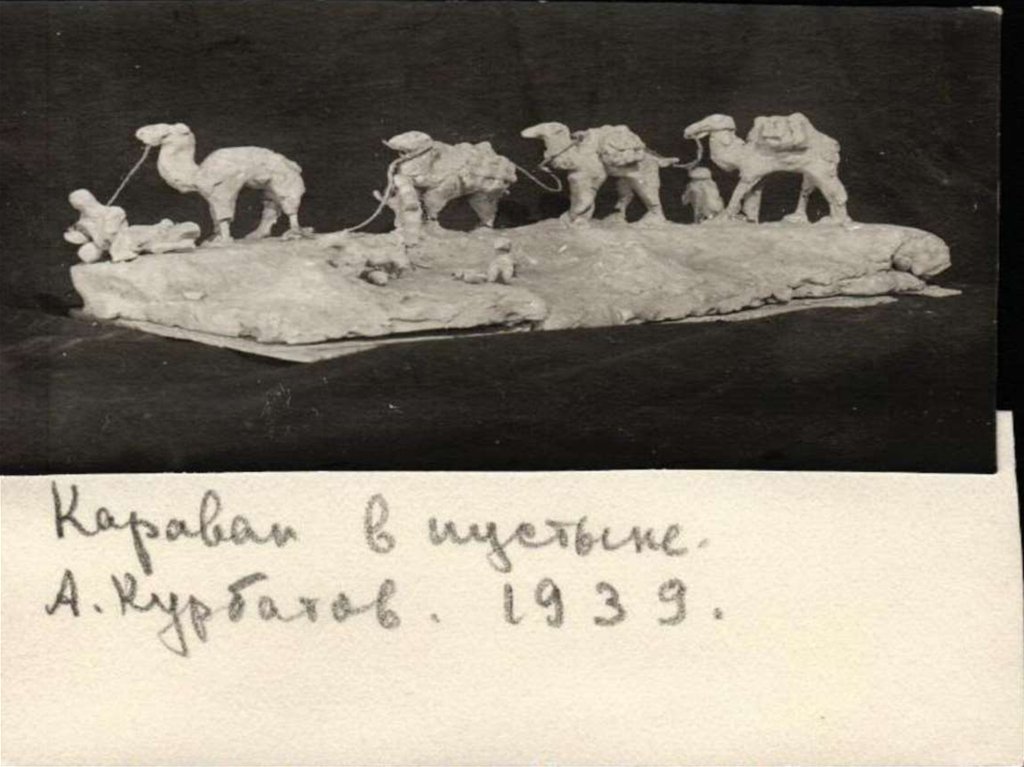 Караван в пустыне.
А. Курбатов. 1939.